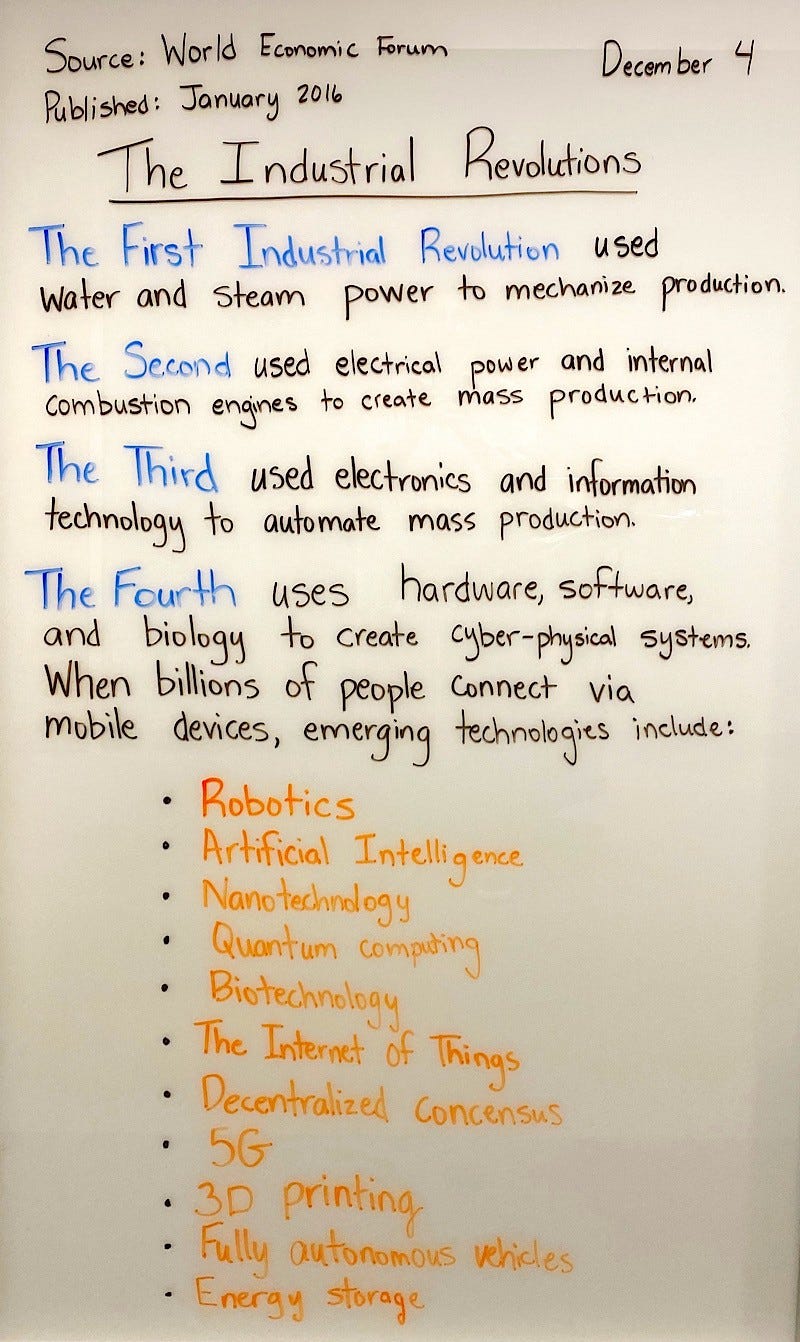 Source: World Economic Forum
December 4
Published: January 2016
The Industrial Revolutions
The First Industrial Revolution used
Water and steam power to mechanize production.
The Second used electrical power and internal
combustion engines to create mass production.
The Third used electronics and information
technology to automate mass production.
The Fourth uses hardware, software,
and biology to create cyber-physical systems.
When billions of people connect via
mobile devices, emerging technologies include:
• Robotics
• Artificial Intelligence
• Nanotechnology
• Quantum computing
• Biotechnology
• The Internet of Things
• Decentralized concensus
• 5G
• 3D printing
• Fully autonomous vehicles
• Energy storage